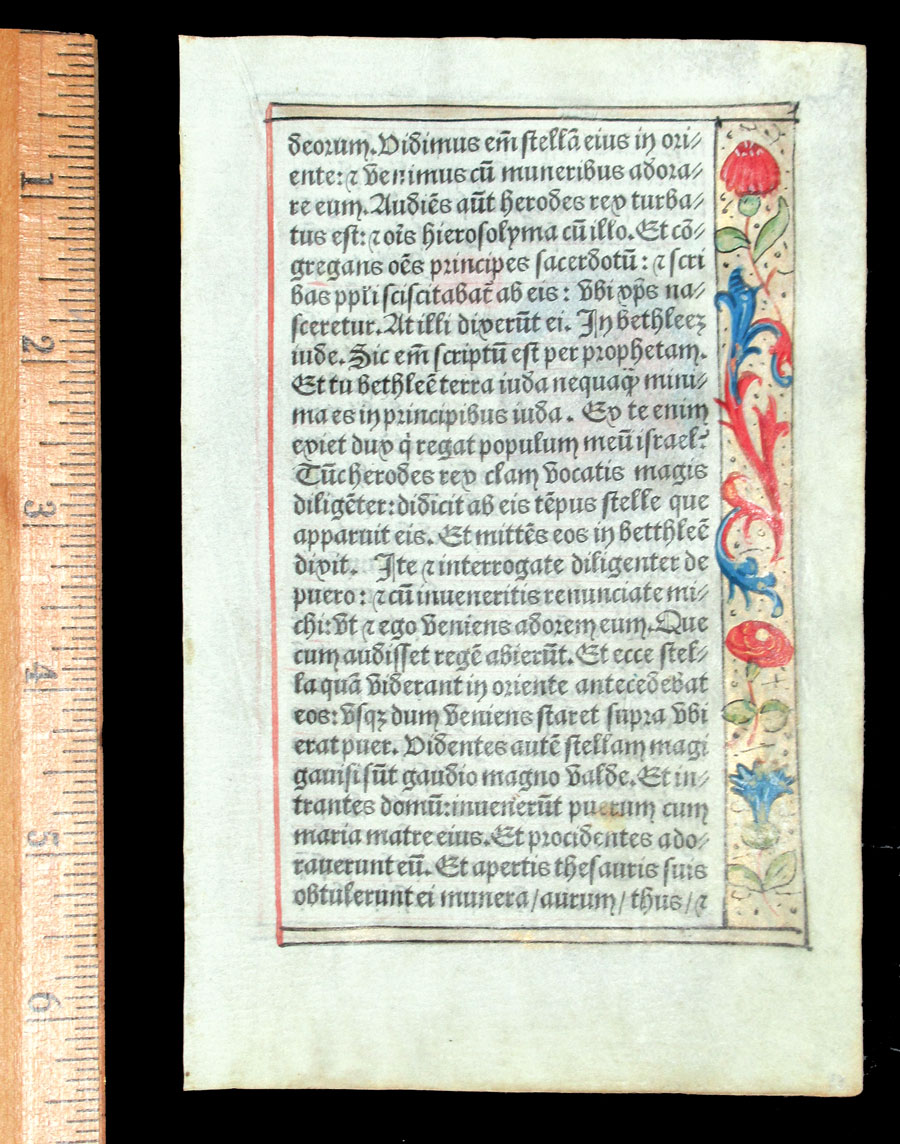 deorum. Vidimus em̄ stellā eius in ori⸗
ente: ⁊ venimus cū muneribus adora⸗
re eum. Audiēs aūt herodes rex turba⸗
tus est: ⁊ oīs hierosolyma cū illo. Et cō⸗
gregans oēs principes sacerdotū: ⁊ scri
bas ppl̄i sciscitabat̄ ab eis: vbi xp̄s na⸗
sceretur. At illi dixerūt ei. In bethleeꝫ
iude. Sic em̄ scriptū est per prophetam.
Et tu bethleē terra iuda nequaq̄ mini⸗
ma es in principibus iuda. Ex te enim
exiet dux q̇ regat populum meū israel.
Tūc herodes rex clam vocatis magis
diligēter: didicit ab eis tēpus stelle que
apparuit eis. Et mittēs eos in betthleē
dixit. Ite ⁊ interrogate diligenter de
puero: ⁊ cū inueneritis renunciate mi⸗
chi: vt ⁊ ego veniens adorem eum. Que
cum audisset regē abierūt. Et ecce stel⸗
la quā viderant in oriente antecedebat
eos: vsqꝫ dum veniens staret supra vbi
erat puer. Videntes autē stellam magi
gauisi sūt gaudio magno valde. Et in⸗
trantes domū: inuenerūt puerum cum
maria matre eius. Et procidentes ado⸗
rauerunt eū. Et apertis thesauris suis
obtulerunt ei munera / aurum / thus / ⁊
1
2
3
4
5
6